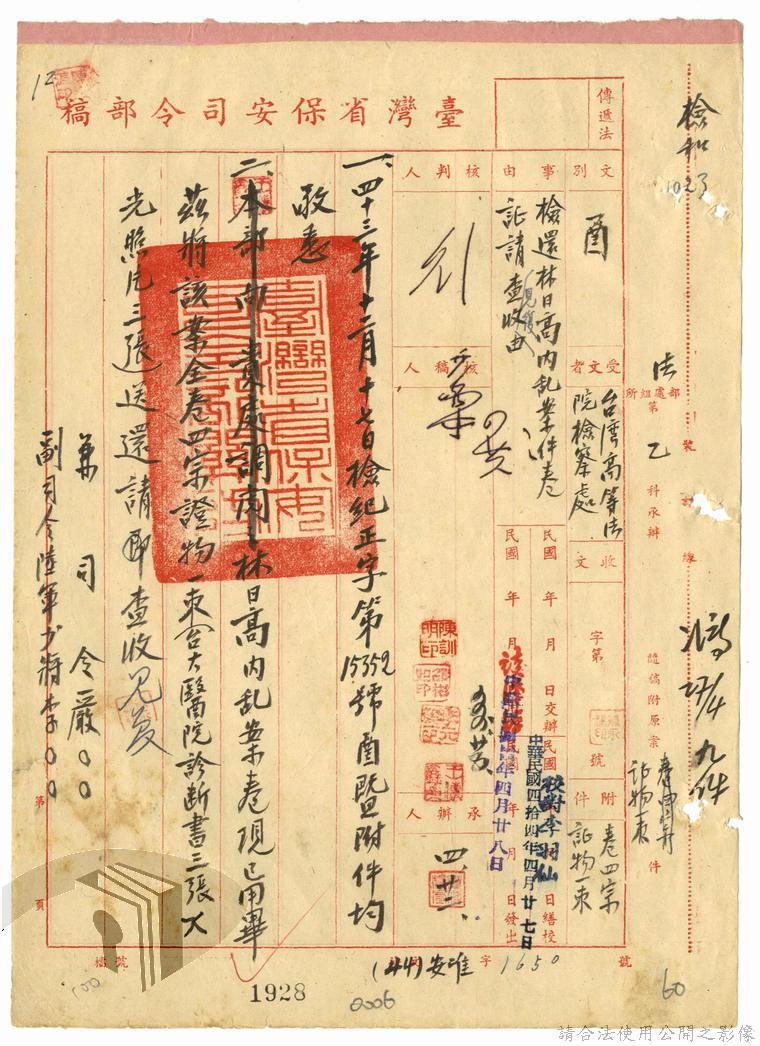 臺灣省保安司令部稿
傳遞法
文別
函
事由
檢還林日高內乱案件卷
証請查收見復由
受文者
台湾高等法
院檢察處
核判人
核稿人
收文
字第
號
附件
卷四宗
証物一束
民國 年 月 日交辦
民國 年 月 日繕校
民國 年 月 日發出
校對李羽仙
中華民國四拾四年四月廿七日
年四月廿八日
承辦人
四、廿二、
部處組所
法
第乙科承辦
隨稿附原案 件
裝訂線
一、四十三年十二月十七日檢紀正字第15352號函暨附件均
敬悉
二、本部向貴處調閱之林日高內乱案卷現已用畢
茲將該案全卷四宗證物一束(台大醫院診断書三張X
光照片三張)送還請即查收見复
兼司令嚴〇〇
副司令陸軍少將李〇〇
第 頁
檔號
(44)安 字 1650 號
1928
0006
60
12
請合法使用公開之影像